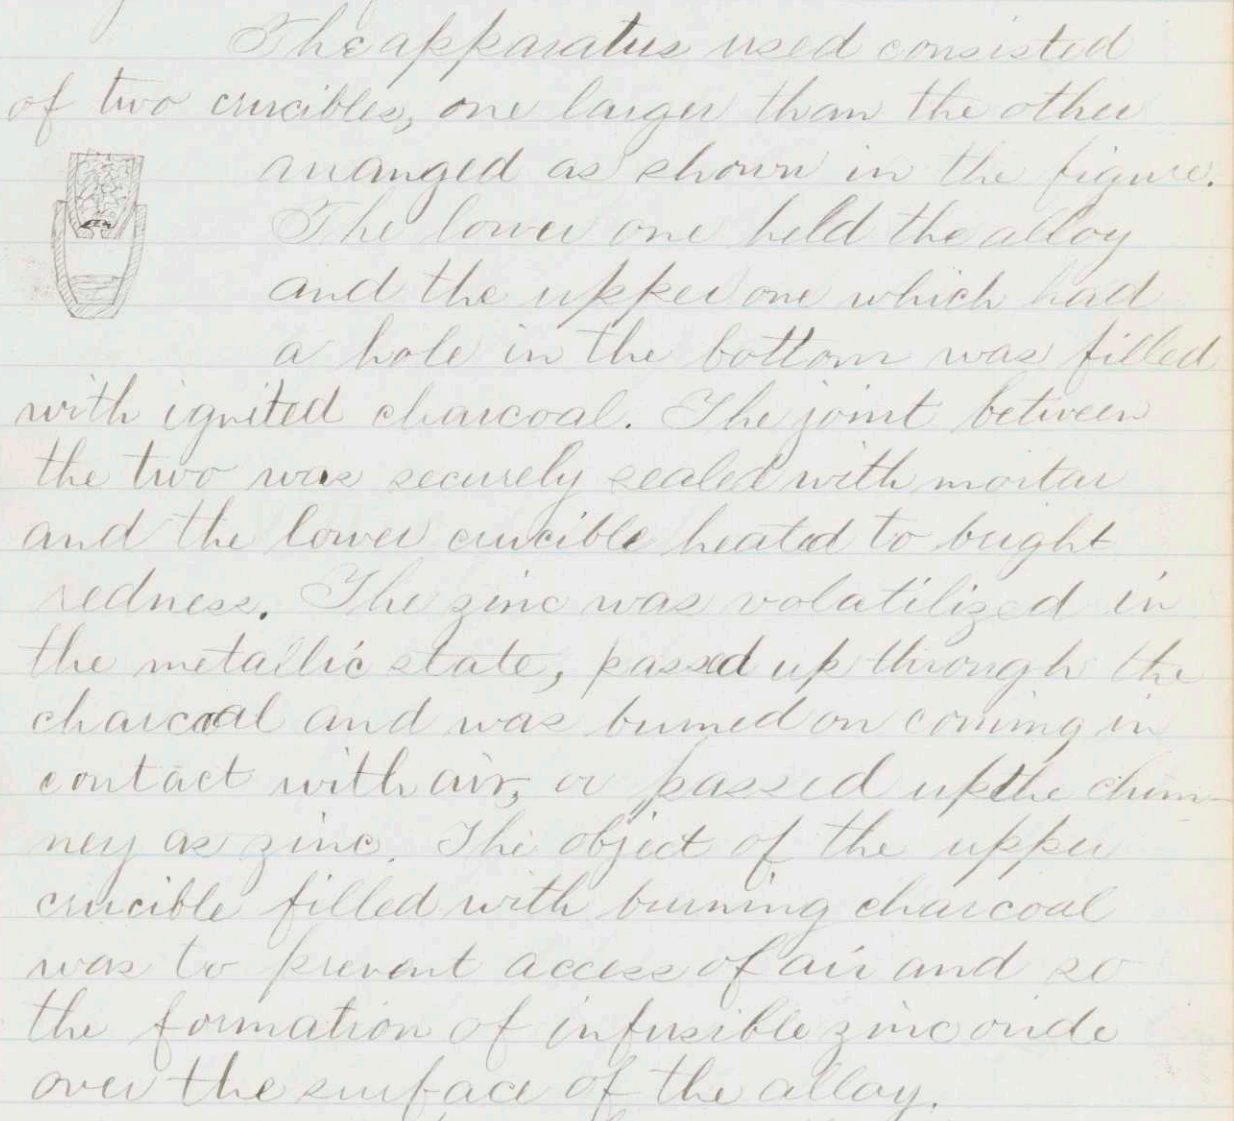 The apparatus used consisted
of two crucibles, one larger than the other
arranged as shown in the figure.
The lower one held the alloy
and the upper one which had
a hole in the bottom was filled
with ignited charcoal. The joint between
the two was securely sealed with mortar
and the lower crucible heated to bright
redness. The zinc was volatilized in
the metallic state, passed up through the
charcoal and was burned on coming in
contact with air, or passed up the chim-
ney as zinc. The object of the upper
crucible filled with burning charcoal
was to prevent access of air and so
the formation of infusible zinc oxide
over the surface of the alloy.